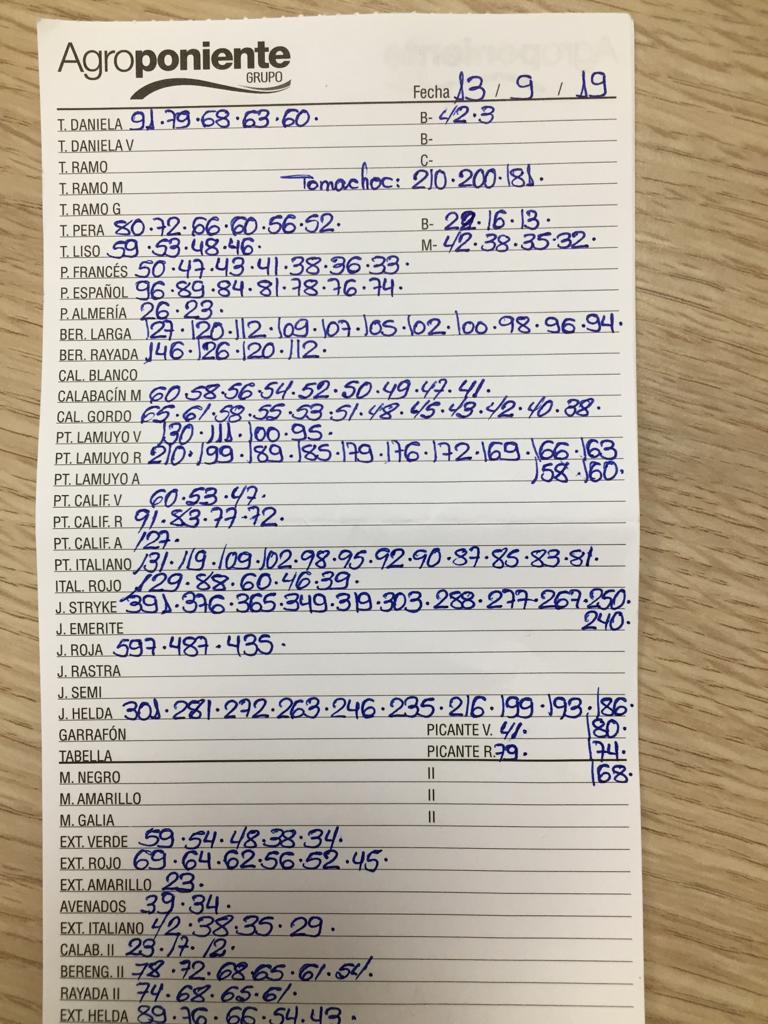 Agroponiente
GRUPO
Fecha 13 / 9 / 19
T. DANIELA 91·79·68·63·60· B- 42·3
T. DANIELA V B-
T. RAMO C-
T. RAMO M Tomachoc: 210·200·181·
T. RAMO G
T. PERA 80·72·66·60·56·52· B- 22·16·13·
T. LISO 59·53·48·46· M- 42·38·35·32·
P. FRANCÉS 50·47·43·41·38·36·33·
P. ESPAÑOL 96·89·84·81·78·76·74·
P. ALMERÍA 26·23·
BER. LARGA 127·120·112·109·107·105·102·100·98·96·94·
BER. RAYADA 146·126·120·112·
CAL. BLANCO
CALABACÍN M 60·58·56·54·52·50·49·47·41·
CAL. GORDO 65·61·58·55·53·51·48·45·43·42·40·38·
PT. LAMUYO V 130·111·100·95·
PT. LAMUYO R 210·199·189·185·179·176·172·169·166·163
PT. LAMUYO A 158·160·
PT. CALIF. V 60·53·47·
PT. CALIF. R 91·83·77·72·
PT. CALIF. A 127·
PT. ITALIANO 131·119·109·102·98·95·92·90·87·85·83·81·
ITAL. ROJO 129·88·60·46·39·
J. STRYKE 391·376·365·349·319·303·288·277·267·250·
J. EMERITE 240·
J. ROJA 597·487·435·
J. RASTRA
J. SEMI
J. HELDA 301·281·272·263·246·235·216·199·193·186·
GARRAFÓN PICANTE V. 41· 180·
TABELLA PICANTE R. 79· 174·
M. NEGRO II 168·
M. AMARILLO II
M. GALIA II
EXT. VERDE 59·54·48·38·34·
EXT. ROJO 69·64·62·56·52·45·
EXT. AMARILLO 23·
AVENADOS 39·34·
EXT. ITALIANO 42·38·35·29·
CALAB. II 23·17·12·
BERENG. II 78·72·68·65·61·54·
RAYADA II 74·68·65·61·
EXT. HELDA 89·76·66·54·43·